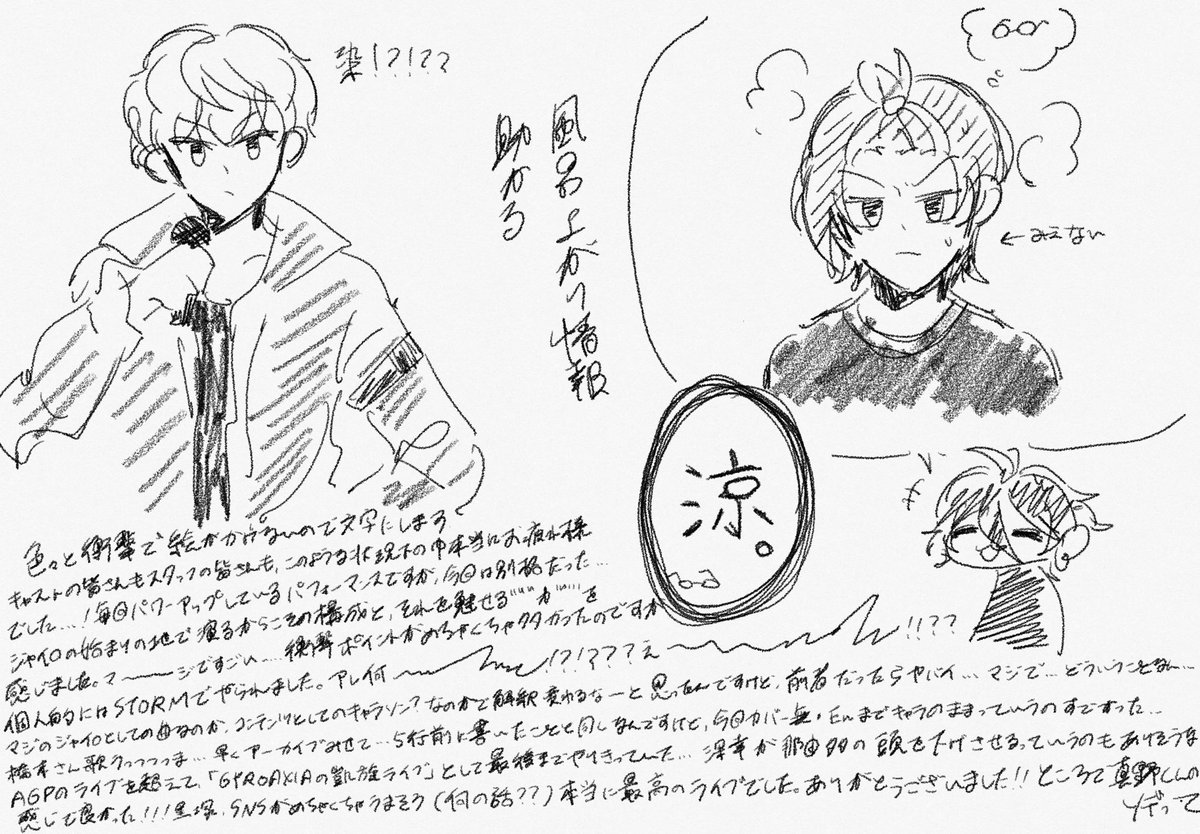 染!?!??
風呂上がり情報
助かる
←みえない
涼。
色々と衝撃で絵がかけないので文字にしまろ
キャストの皆さんもスタッフの皆さんも、このような状況下の中本当にお疲れ様
でした…！毎回パワーアップしているパフォーマンスですが、今回は別格だった…
ジャイロの始まりの地で演るからこその構成と、それを魅せる""""力""""を
感じました。マーーージですごい…衝撃ポイントがめちゃくちゃ多かったのですが
個人的にはSTORMでやられました。アレ何 !?!???え !!??
マジのジャイロとしての曲なのか、コンテンツとしてのキャラソン?なのかで解釈変わるなーと思ったんですけど、前者だったらヤバイ…マジで…どういうことなん…
橋本さん歌うっっっっま…早くアーカイブみせて…5行前に書いたことと同じなんですけど、今回カバー無・たぶんまでキャラのままっていうのすごかった…
AGPのライブを超えて、「GYROAXIAの凱旋ライブ」として最後までやりきっていた…深幸が那由多の頭を下げさせるっていうのもありそうな
感じで良かった!!!里塚、SNSがめちゃくちゃうまそう(何の話??)本当に最高のライブでした。ありがとうございました!!ところで真野くんの
ソデって